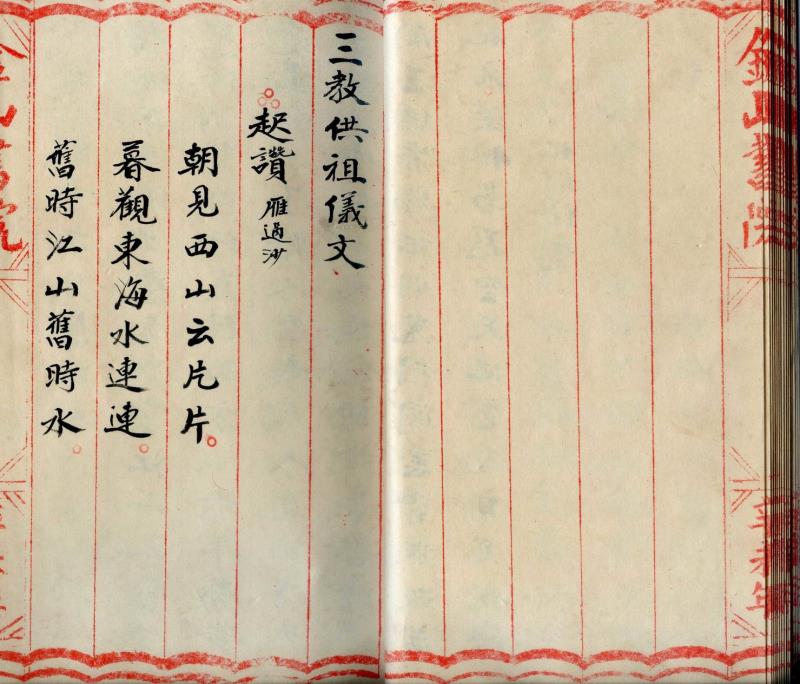 三教供祖儀文
起讚 雁過沙
朝見西山云片片
暮觀東海水連連
舊時江山舊時水